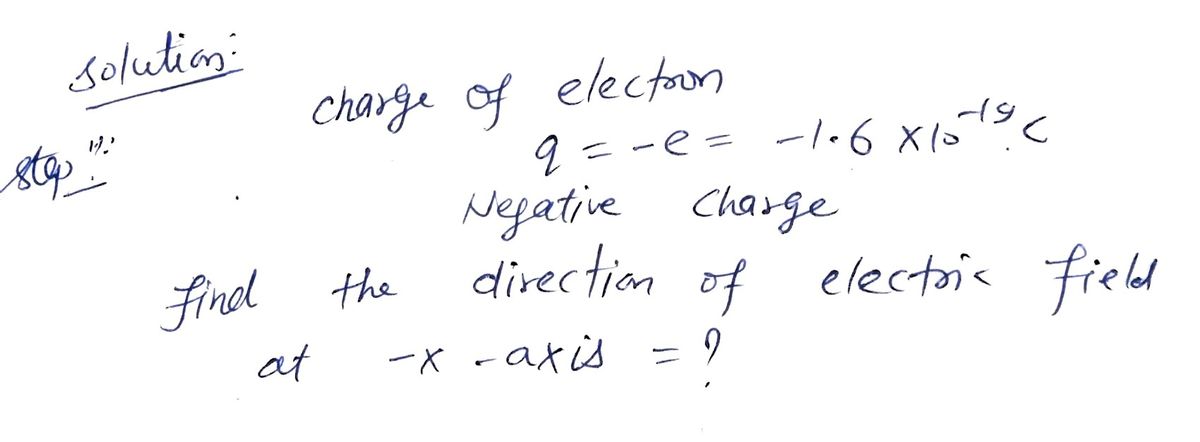 solution:
charge of electron
step 1:
q = -e = -1.6 X10⁻¹⁹ C
Negative Charge
find the direction of electric field
at -x -axis = ?